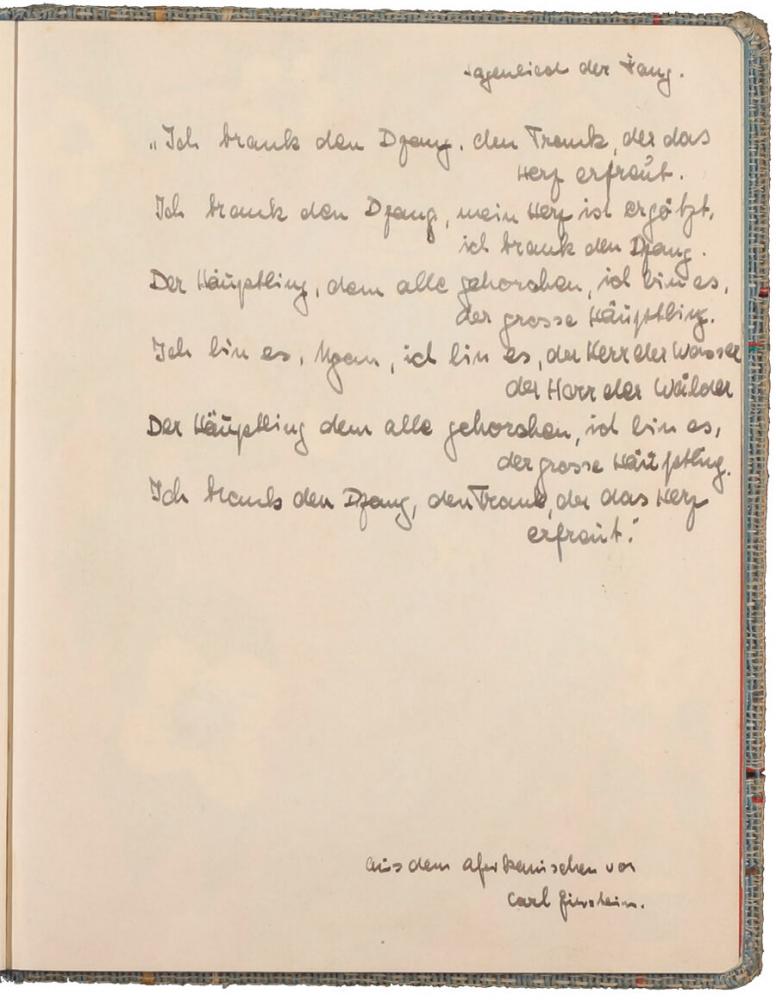 Sagenlied der Fang.
„Ich trank den Dzang. den Trank, der das
Herz erfreut.
Ich trank den Dzang, mein Herz ist ergötzt,
ich trank den Dzang.
Der Häuptling, dem alle gehorchen, ich bin es,
der grosse Häuptling.
Ich bin es, ich bin es, der Herr der Wasser
der Herr der Wälder
Der Häuptling dem alle gehorchen, ich bin es,
der grosse Häuptling.
Ich trank den Dzang, den Trank, der das Herz
erfreut."
aus dem afrikanischen von
Carl Einstein.